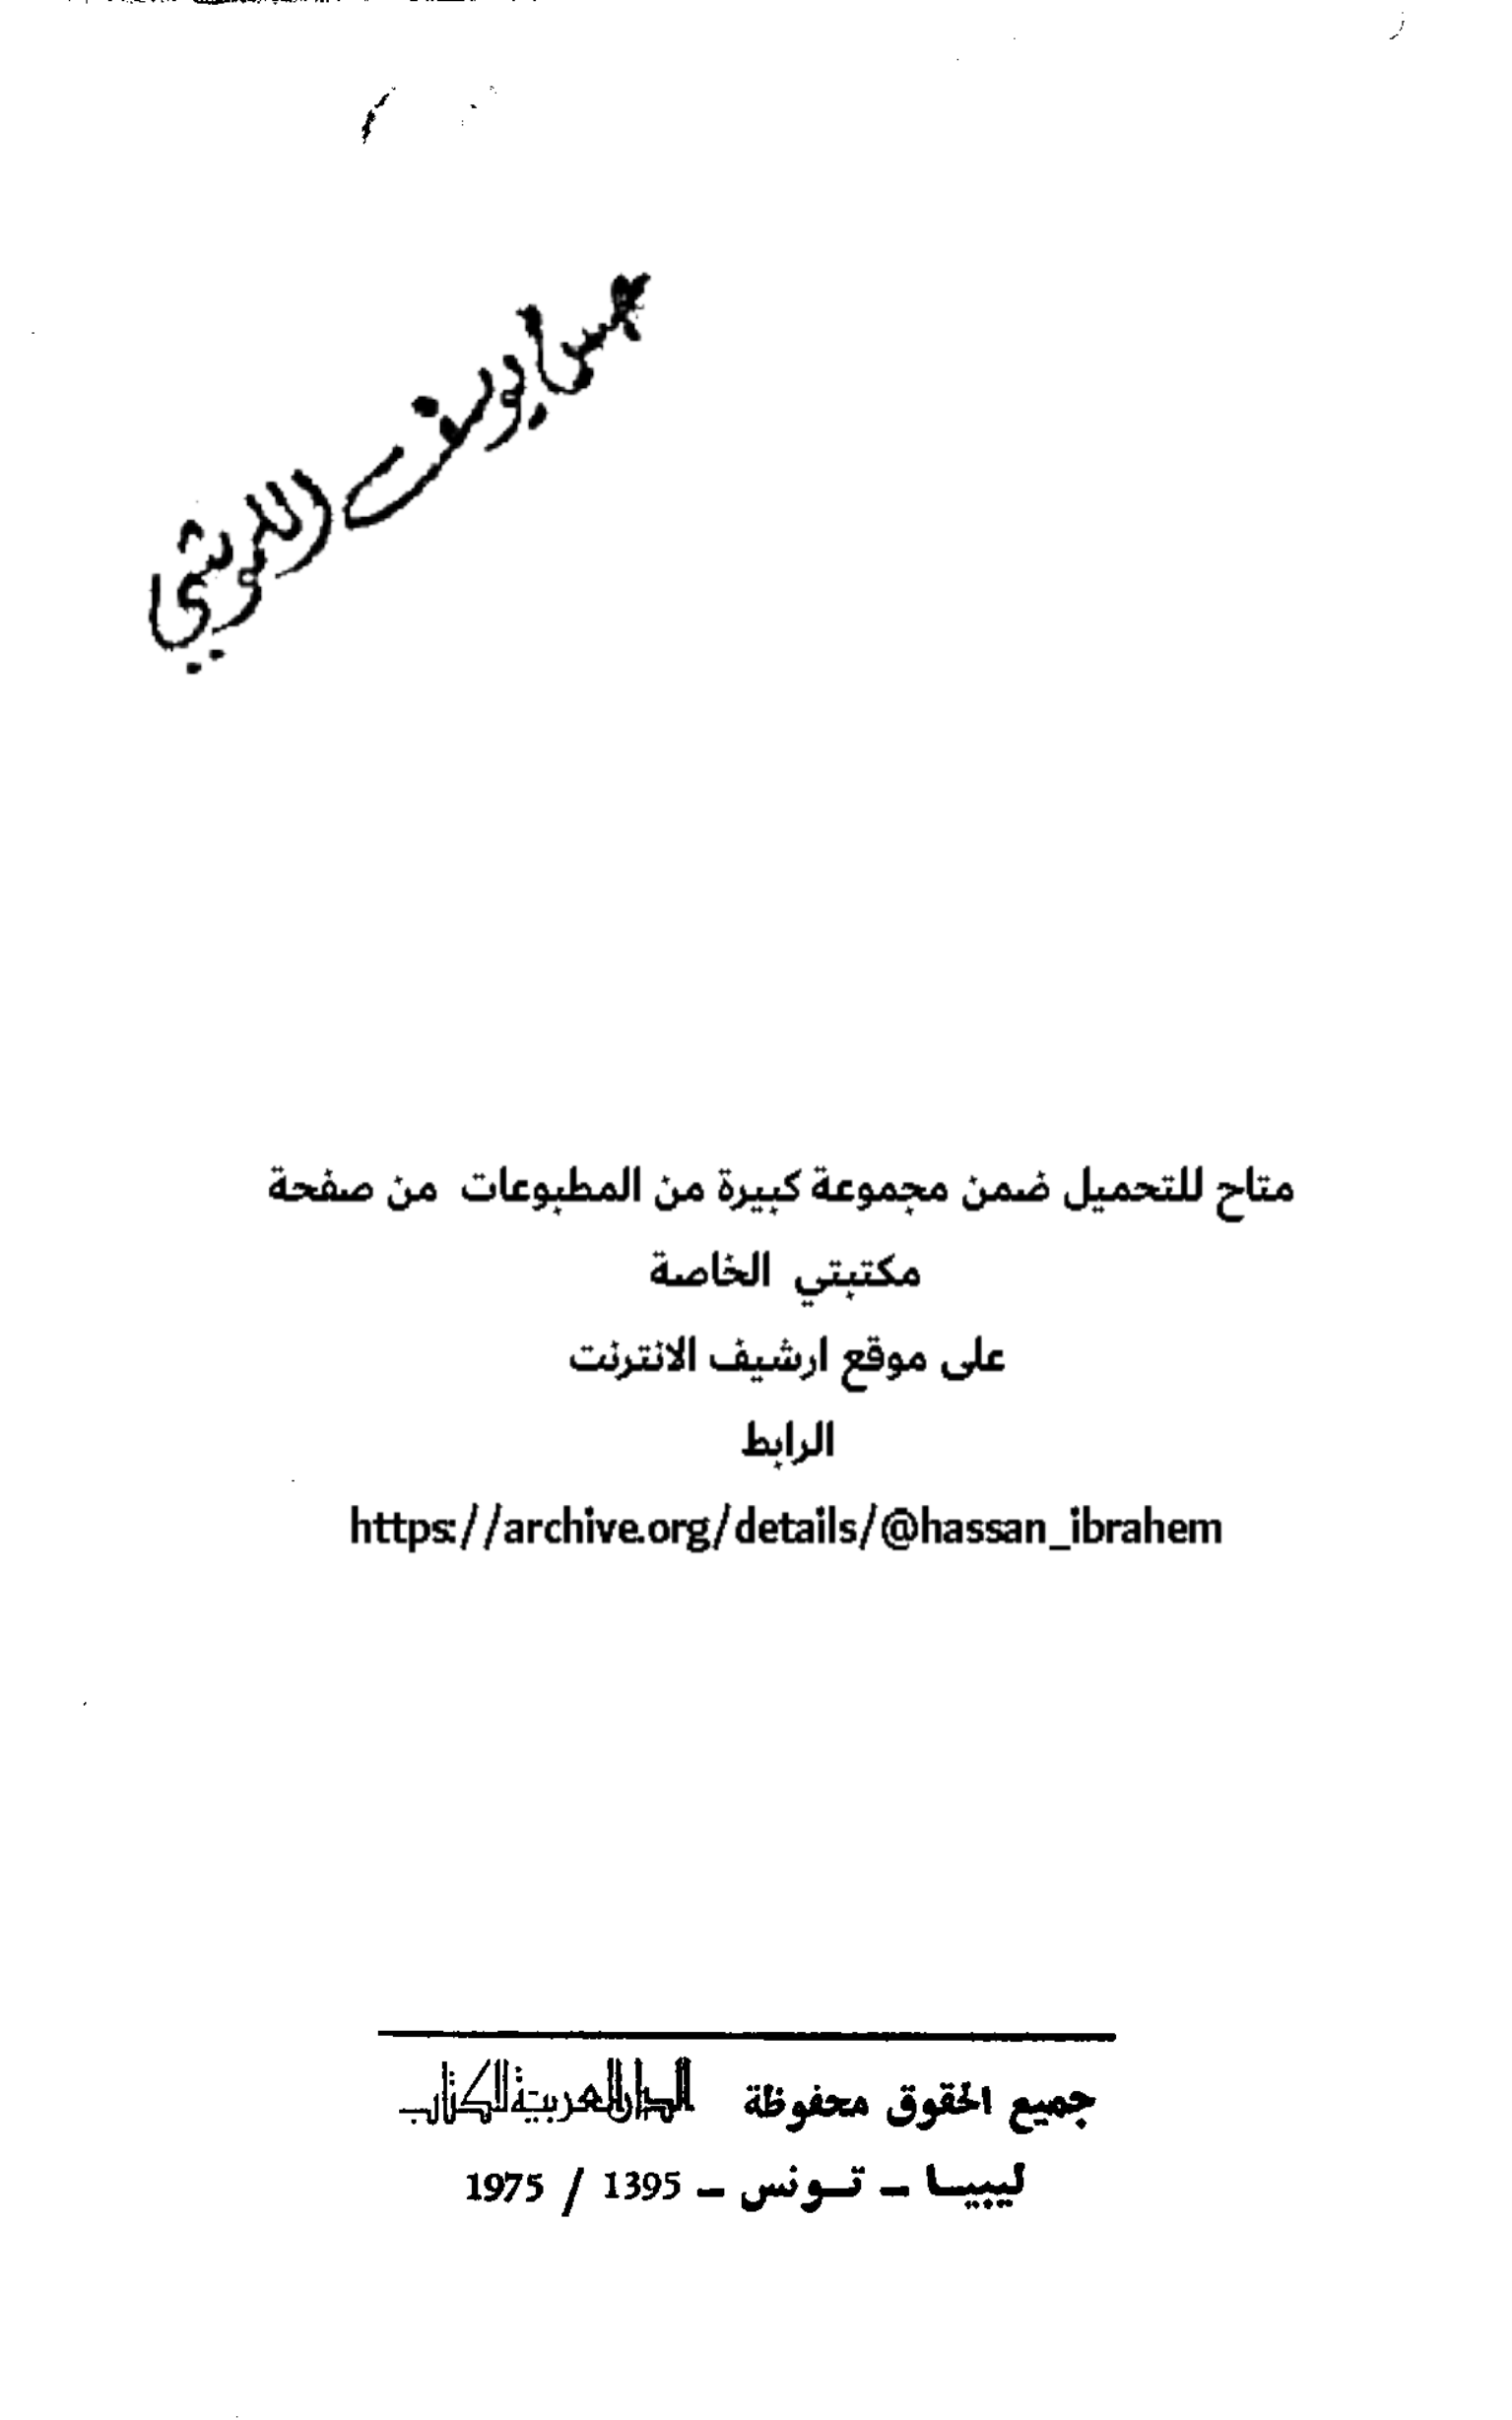 متاح للتحميل ضمن مجموعة كبيرة من المطبوعات من صفحة
مكتبتي الخاصة
على موقع ارشيف الانترنت
الرابط
https://archive.org/details/@hassan_ibrahem
جميع الحقوق محفوظة الدار العربية للكتاب
ليبيا - تونس - 1395 / 1975